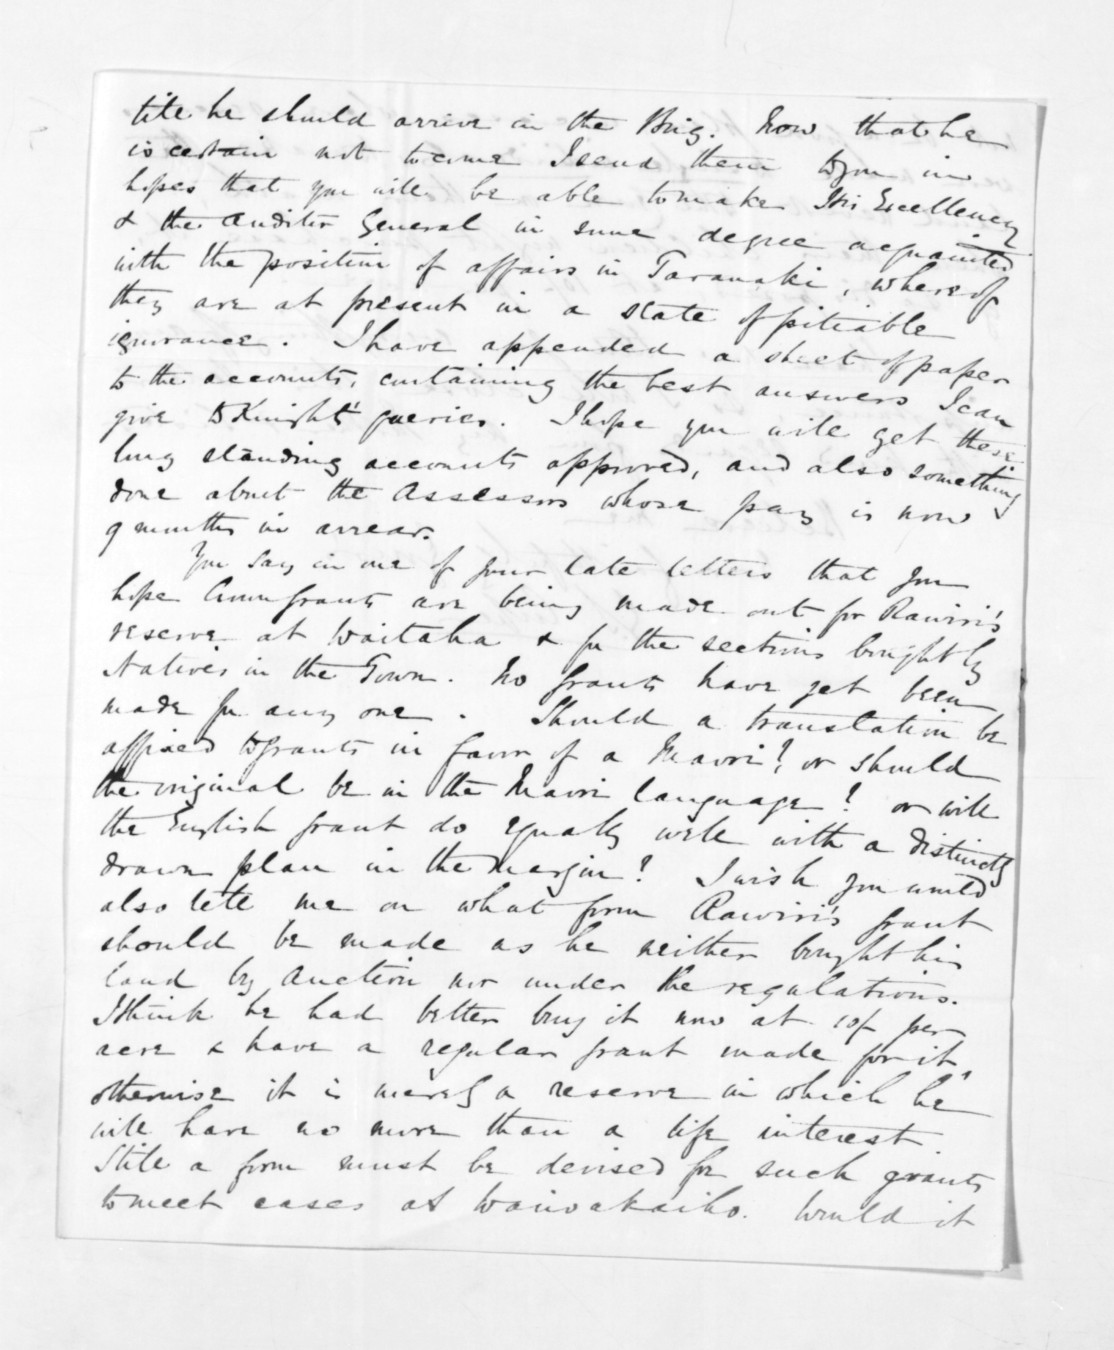 till he should arrive in the Brig. Now that he
is certain not to come I send them to you in
hopes that you will be able to make His Excellency
& the Auditor General in some degree acquainted
with the position of affairs in Taranaki, whereof
they are at present in a state of pitiable
ignorance. I have appended a sheet of paper
to the accounts, containing the best answers I can
give to Knight's queries. I hope you will get these
long standing accounts approved, and also something
done about the Assessors whose pay is now
9 months in arrear.
You say in one of your late letters that you
hope Crown Grants are being made out for Rawiri's
reserve at Waitaha & for the sections bought by
Natives in the Town. No grants have yet been
made for any one. Should a translation be
affixed to grants in favor of a Maori? or should
the original be in the Maori language? or will
the English grant do equally well with a distinctly
drawn plan in the margin? I wish you would
also tell me on what form Rawiri's grant
should be made as he neither bought his
land by auction nor under the regulations.
I think he had better buy it now at 10/ per
acre & have a regular grant made for it
otherwise it is merely a reserve in which he
will have no more than a life interest
Still a form must be devised for such grants
to meet cases at Waiwakaiho. Would it